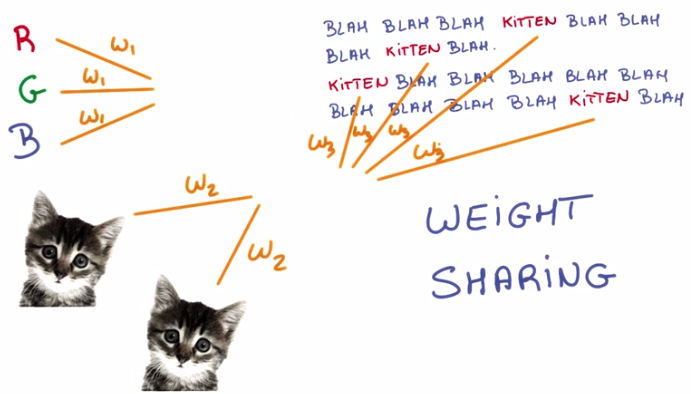 R
G
B
ω1
ω1
ω1
BLAH BLAH BLAH KiTTEN BLAH BLAH
BLAH KiTTEN BLAH.
KiTTEN BLAH BLAH BLAH BLAH BLAH
BLAH BLAH BLAH BLAH KiTTEN BLAH
ω3 ω3 ω3 ω3
ω2
ω2
WEiGHT
SHARiNG